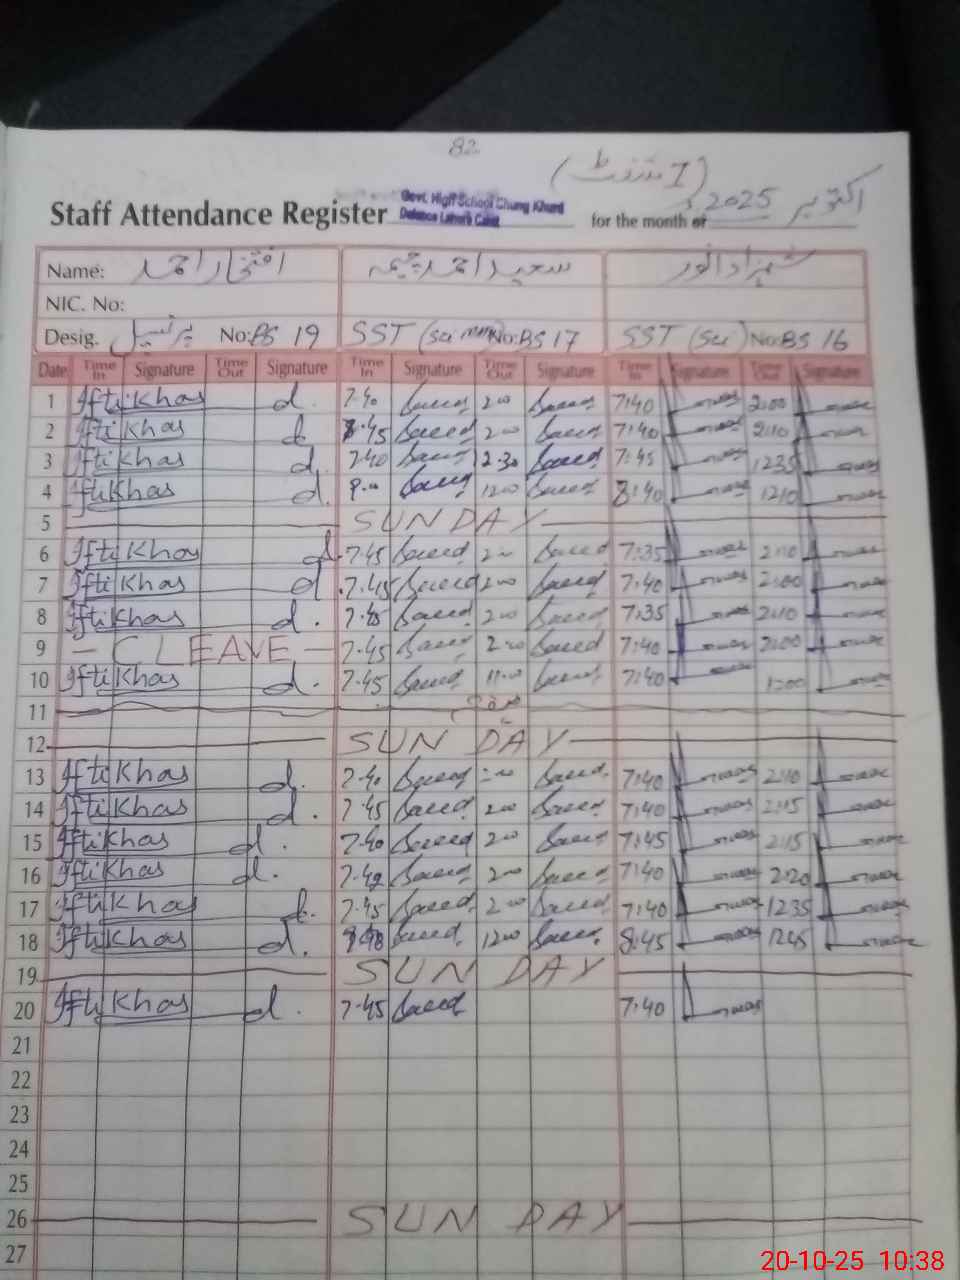 82
(I شفٹ)
Staff Attendance Register Govt. High School Chung Khurd for the month of اکتوبر 2025
Name: افتخار احمد سعید احمد شہزاد انور
NIC. No:
Desig. پرنسپل No: BS 19 SST (Sci No: BS 17 SST (Sci) No: BS 16
Date Time In Signature Time Out Signature Time In Signature Time Out Signature Time In Signature Time Out Signature
1 Iftikhar d. 7.40 Saeed 200 Saeed 7:40 2:00
2 Iftikhar d. 7.45 Saeed 200 Saeed 7:40 2:10
3 Iftikhar d. 7.40 Saeed 2.30 Saeed 7:45 1235
4 Iftikhar d. Saeed 1200 Saeed 8:40 1210
5 SUNDAY
6 Iftikhar d. 7.45 Saeed Saeed 7:35 2:10
7 Iftikhar d 7.45 Saeed 200 Saeed 7:40 2:00
8 Iftikhar d. 7.45 Saeed 200 Saeed 7:35 2:10
9 C LEAVE 7.45 Saeed 200 Saeed 7:40 2:00
10 Iftikhar d. 7.45 Saeed 11.00 Saeed 7:40 1:00
11
12 SUN DAY
13 Iftikhar d. 7.40 Saeed Saeed 7:40 2:10
14 Iftikhar d. 7.45 Saeed 200 Saeed 7:40 2:15
15 Iftikhar d. 7.40 Saeed 200 Saeed 7:45 2:15
16 Iftikhar d. 7.42 Saeed 200 Saeed 7:40 2:20
17 Iftikhar d. 7.45 Saeed 200 Saeed 7:40 1235
18 Iftikhar d. Saeed 1200 Saeed 8:45 1245
19 SUN DAY
20 Iftikhar d. 7.45 Saeed 7:40
21
22
23
24
25
26 SUN DAY
27
20-10-25 10:38